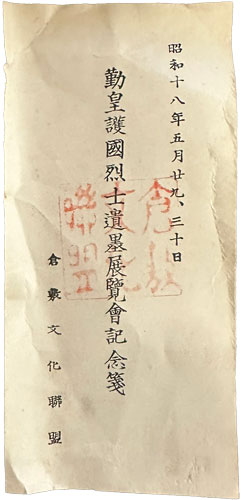 昭和十八年五月廿九、三十日
勤皇護國烈士遺墨展覽會記念箋
倉敷文化聯盟
倉敷
文化
聯盟